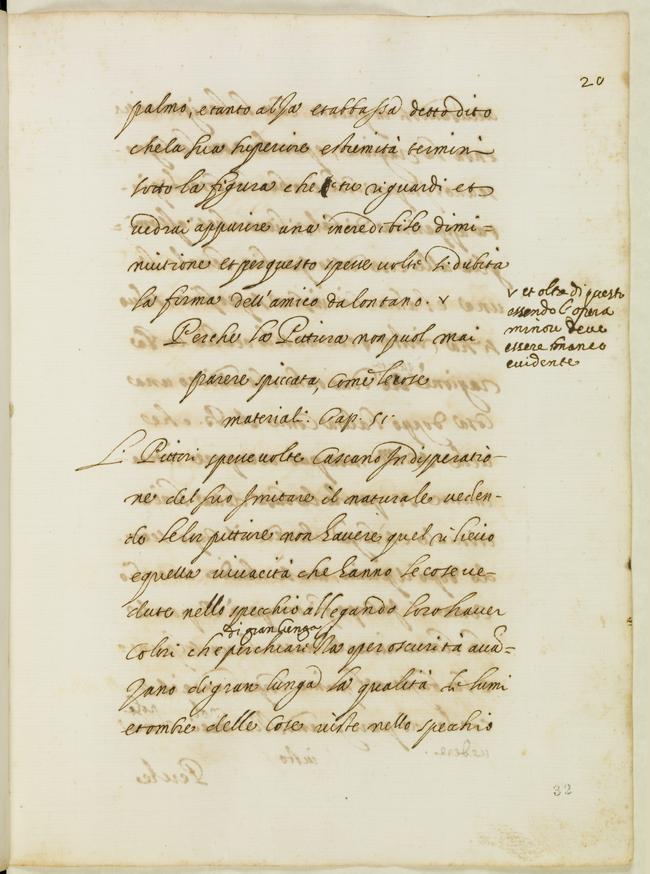 20
palmo, e tanto alza et abbassa detto dito
che la sua superiore estremità termini
sotto la figura che tu riguardi et
vedrai apparire una incredibile dimi=
nuitione et per questo spesse volte si dubita
la forma dell'amico da lontano. v
v et oltre di questo
essendo l'opera
minore deve
essere manco
evidente
Perche la Pittura non puol, mai
parere spiccata, come le cose
materiali. Cap. 51.
L. Pittori spesse volte cascano in disperatio=
ne del suo imitare il naturale veden=
do le lor pitture non havere quel rilievo
e quella vivacità che hanno le cose ve=
dute nello specchio allegando loro haver
di gran lunga
colori che per chiarezza o per oscurità avan=
zano di gran lunga la qualità de lumi
et ombre delle cose viste nello specchio
32